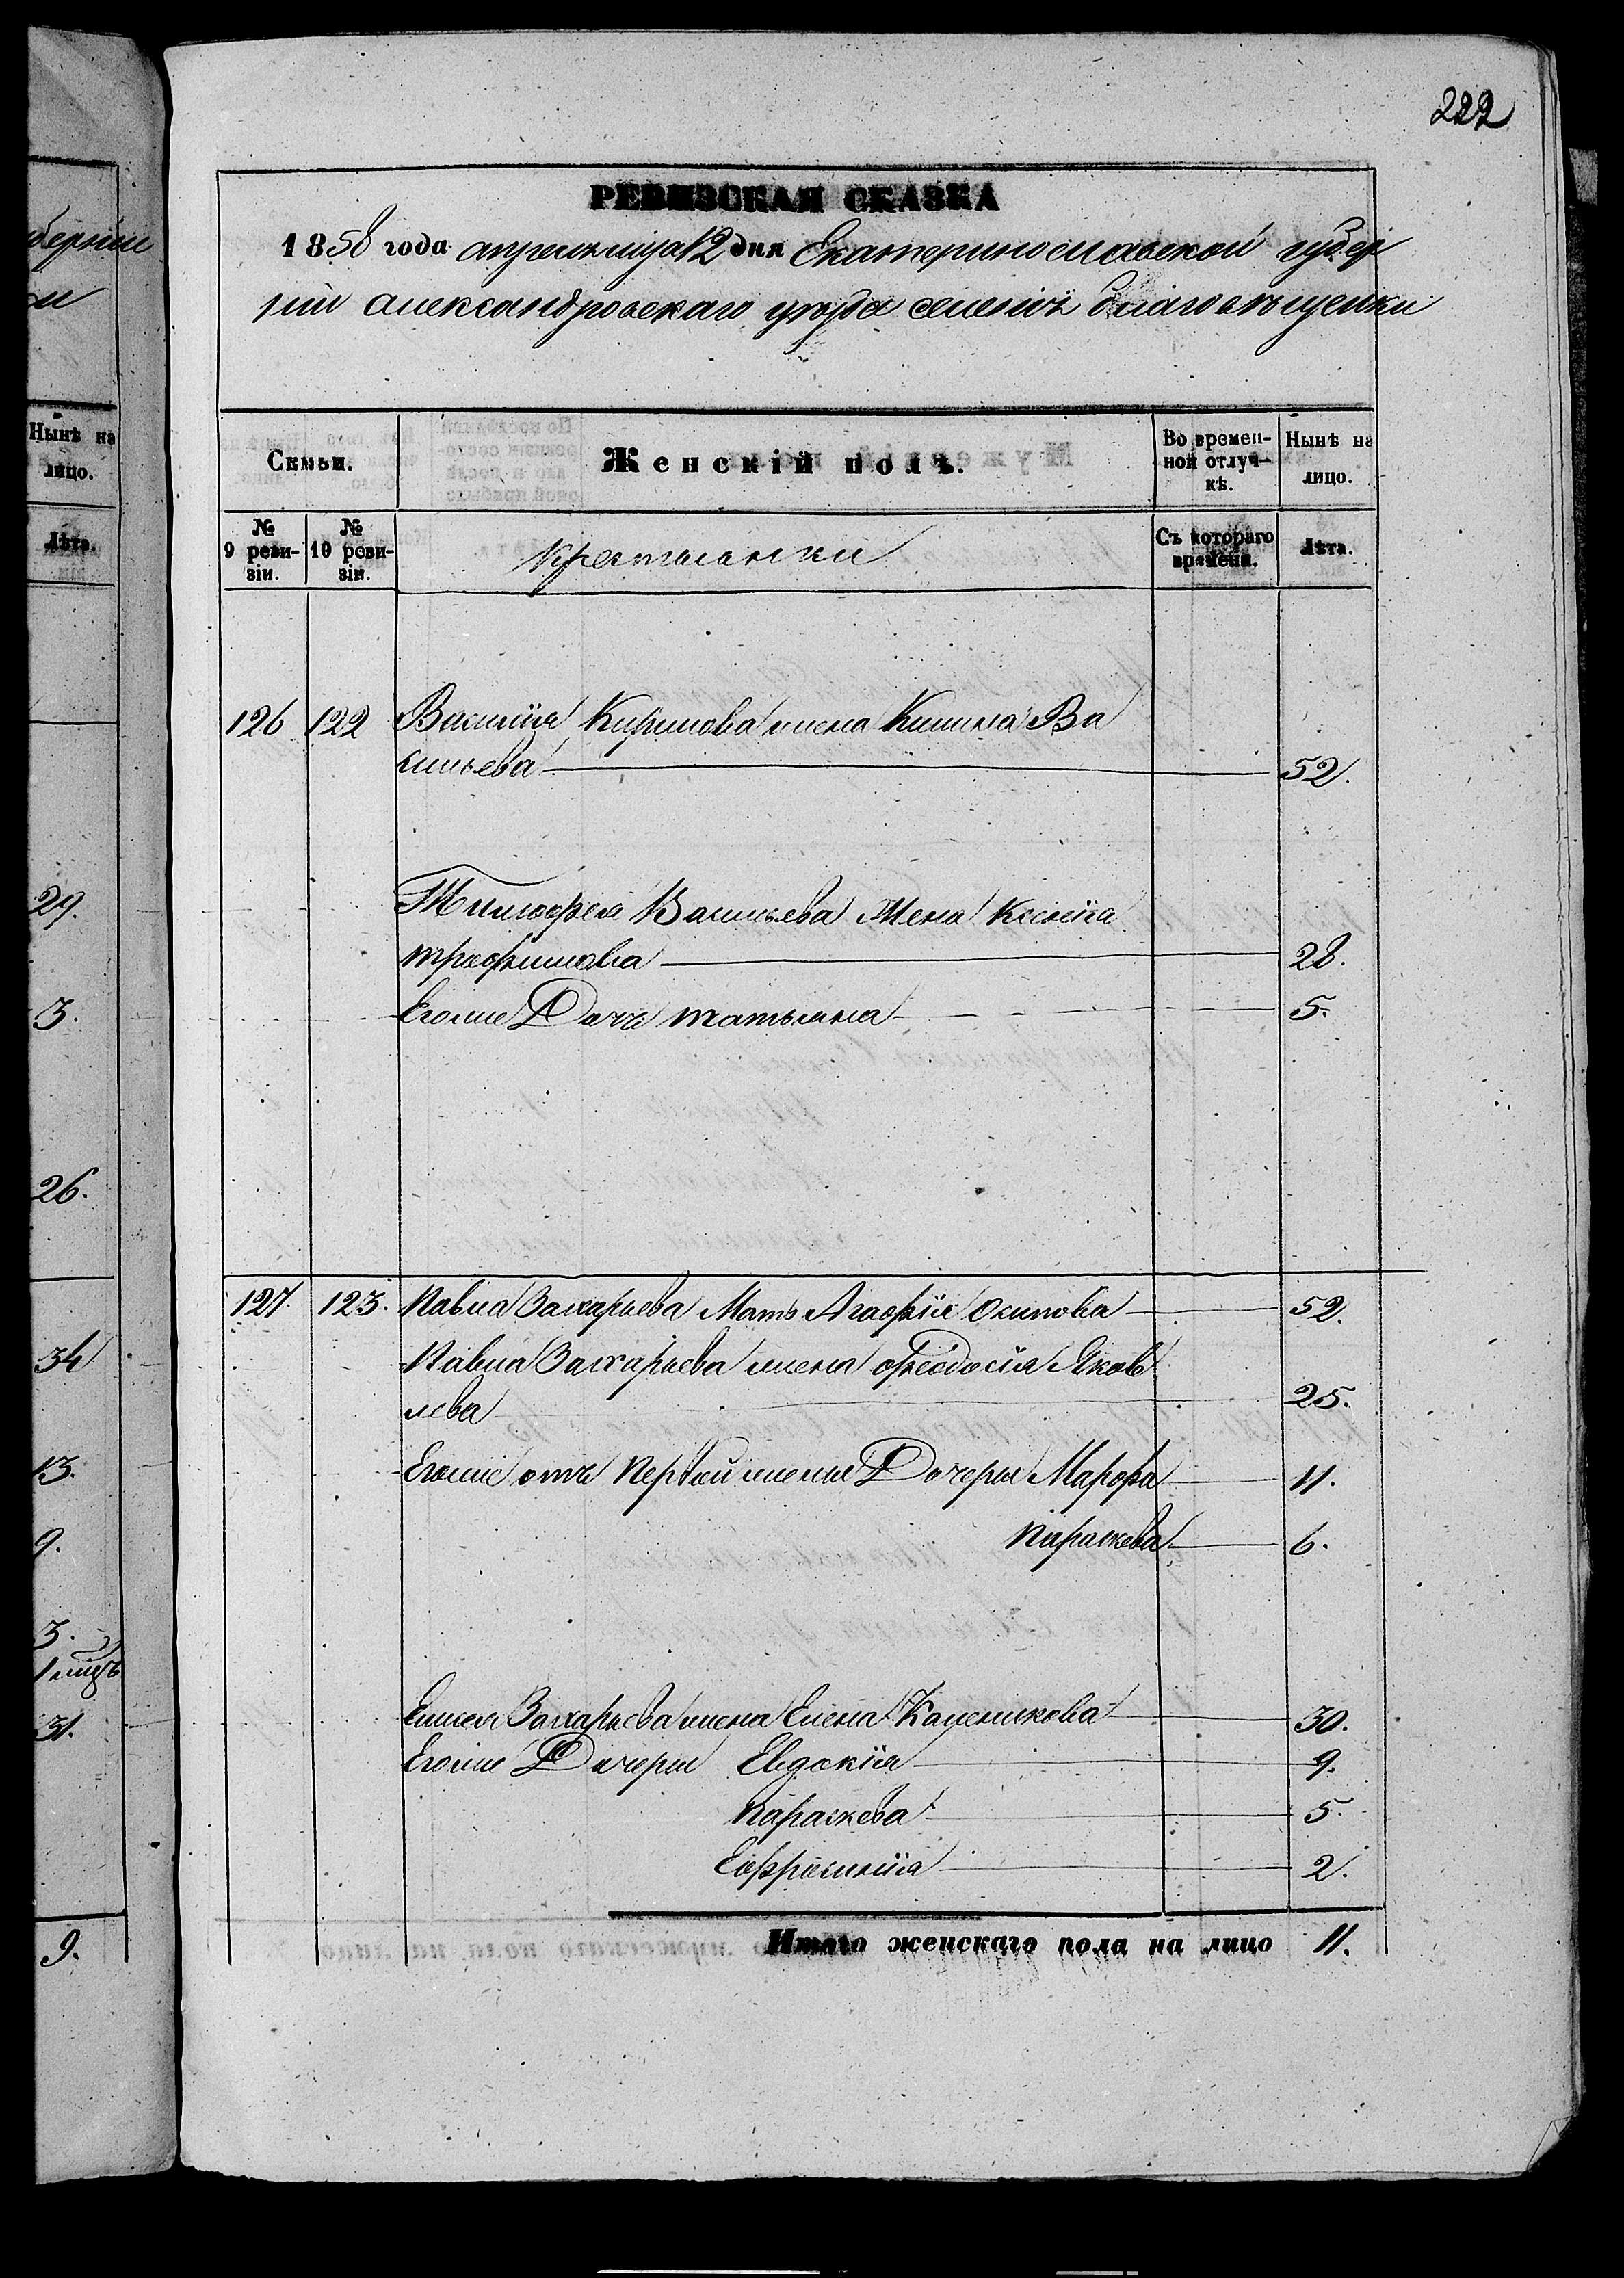 222
РЕВИЗСКАЯ СКАЗКА
1858 года апреля мца 12 дня Екатеринославской губер
нии александровскаго уезда селения благовещенки
Семьи.
Женскій полъ.
Во времен-
ной отлуч-
кѣ.
Нынѣ на
лицо.
№
9 реви-
зіи.
№
10 реви-
зіи.
Крестьянки
Съ котораго
времени.
Лѣта.
126 122 Василія Кирилова жена Ва
сильева 52.
Тимофея Васильева жена Ксенія
трофимова 28.
Егоже Дочь татьяна 5.
127. 123. Павла Захарьева Мать Агафія Осипова 52.
Павла Захарьева жена Феодосія Яков
лева 25.
Егоже отъ первой жены Дочери Марфа 11.
Параскева 6.
Захарьева жена Елена 30.
Егоже Дочери Евдокія 9.
Параскева 5.
Ефросинія 2.
Итого женскаго пола на лицо 11.
берніи
Нынѣ на
лицо.
Лѣта.
29.
3.
26.
34
13.
9.
3.
31.
9.